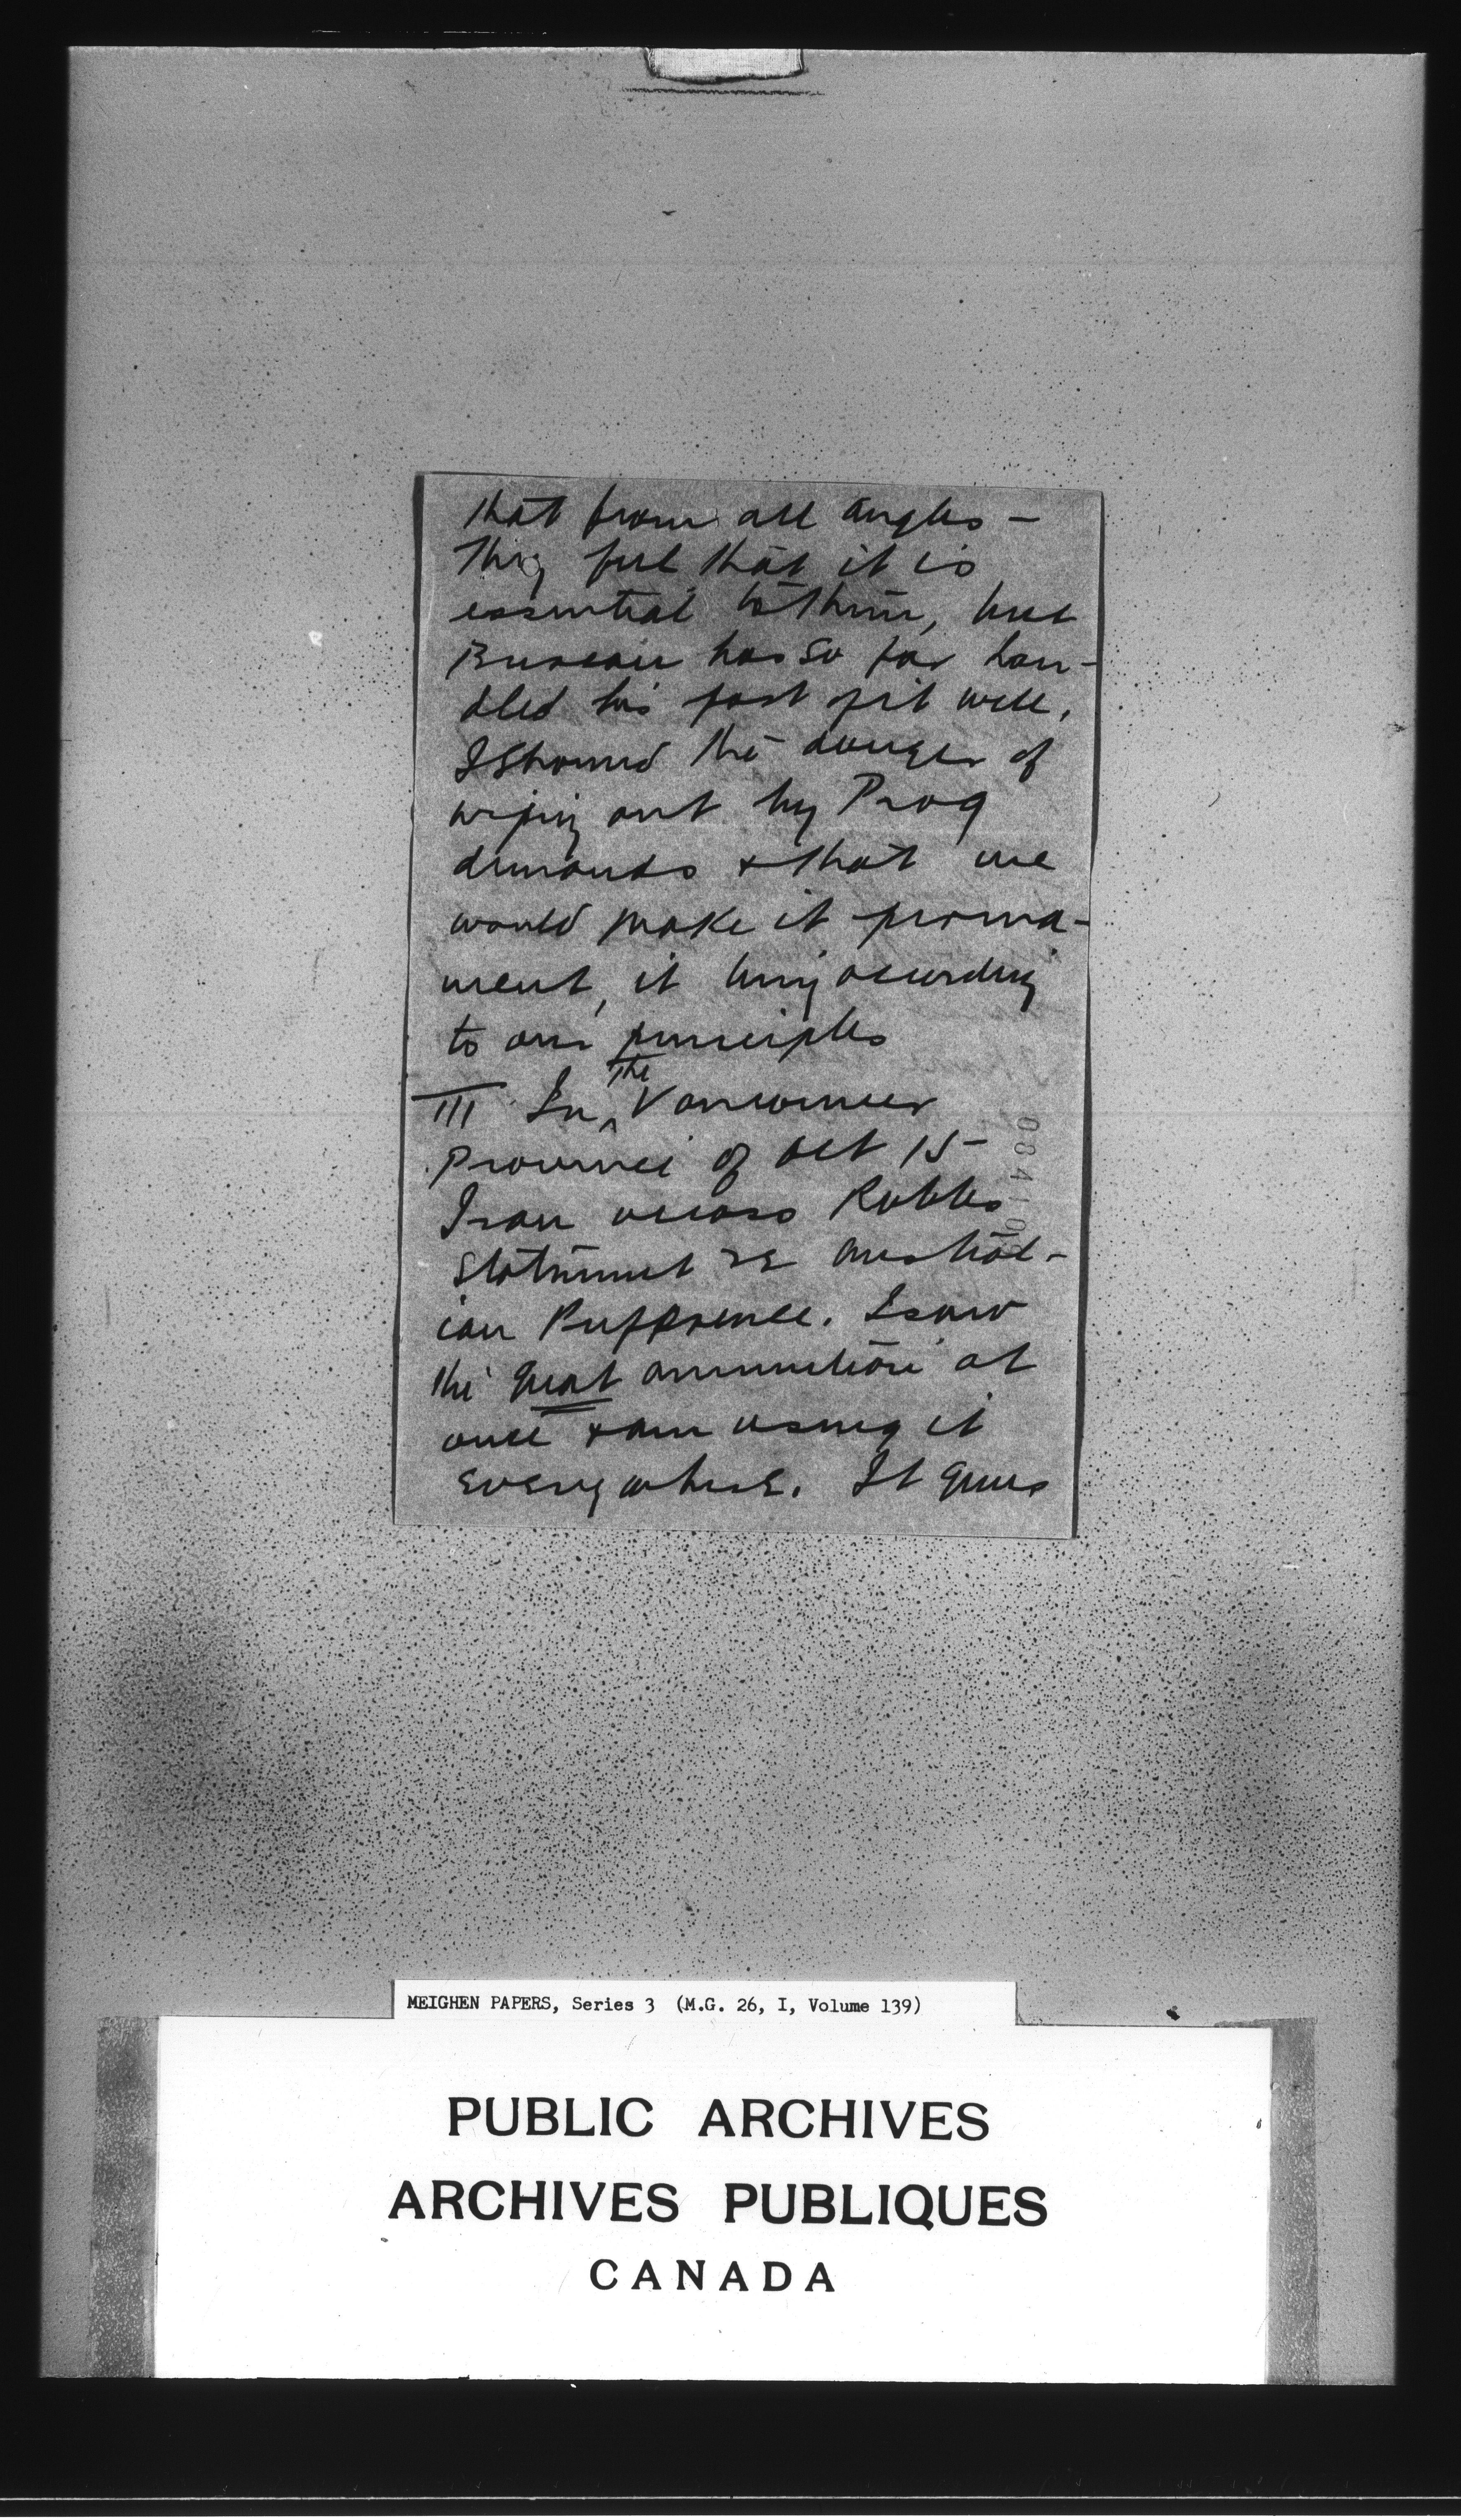 that from all angles —
They feel that it is
essential to them, but
Bureau has so far han-
dled his part of it well.
I showed the danger of
wiping out by Prog
demands & that we
would make it perma-
nent, it being according
to our principles
III In ^the Vancouver
Province of Oct 15 –
I ran across Robbs
statement re Austral-
ian Preference. I saw
the great ammunition at
once & am using it
everywhere. It gives
MEIGHEN PAPERS, Series 3 (M.G. 26, I, Volume 139)
PUBLIC ARCHIVES
ARCHIVES PUBLIQUES
CANADA